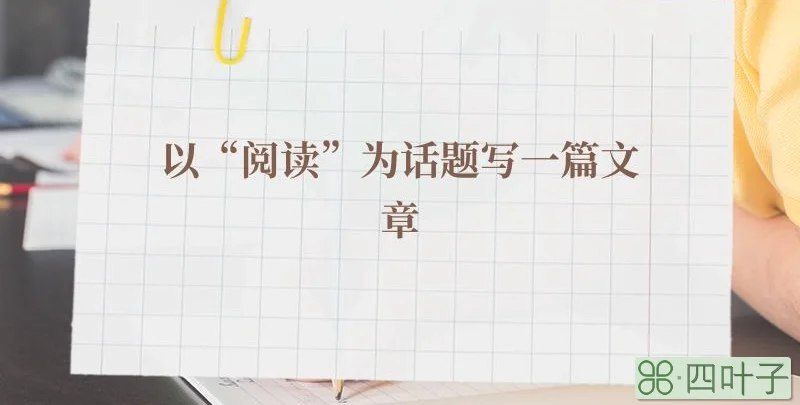 以“阅读”为话题写一篇文
章
四叶子